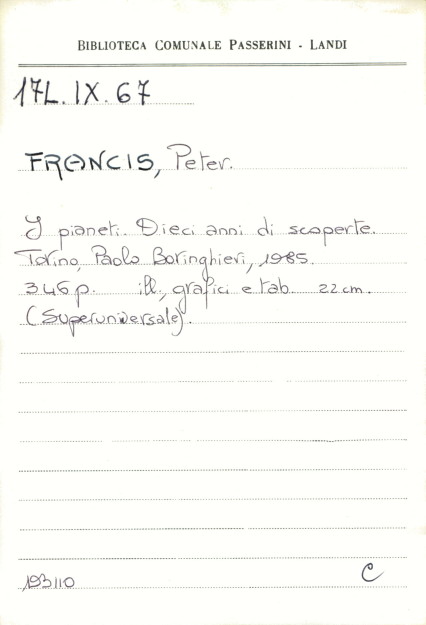 BIBLIOTECA COMUNALE PASSERINI - LANDI
17L. IX. 67
FRANCIS, Peter.
I pianeti. Dieci anni di scoperte.
Torino, Paolo Boringhieri, 1985.
346 p. ill., grafici e tab. 22 cm.
(Superuniversale).
193110 C